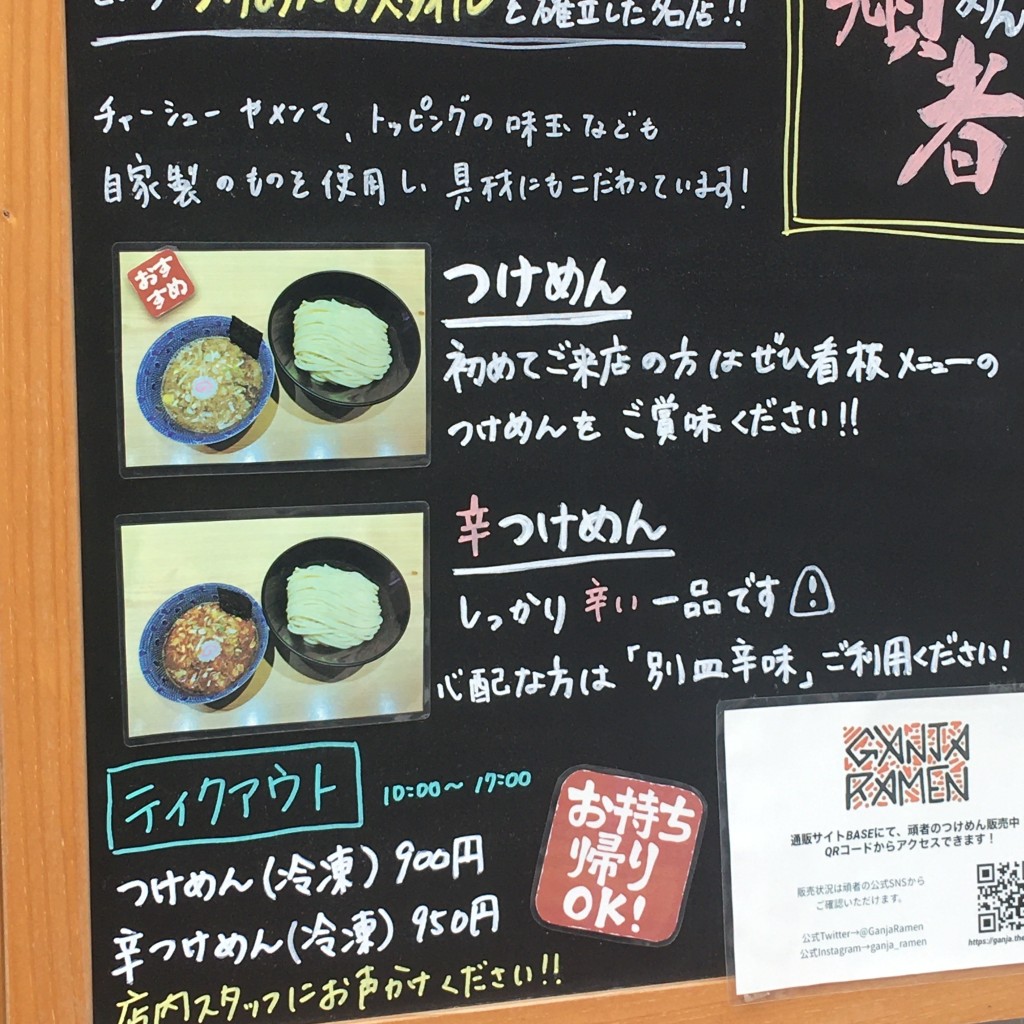 つけめんのスタイルを確立した名店!!
頑者
チャーシューやメンマ、トッピングの味玉なども
自家製のものを使用し、具材にもこだわっています!
おす
すめ
つけめん
初めてご来店の方はぜひ看板メニューの
つけめんをご賞味ください!!
辛つけめん
しっかり辛い一品です
心配な方は「別皿辛味」ご利用ください!
テイクアウト 10:00〜17:00
つけめん(冷凍) 900円
辛つけめん(冷凍) 950円
店内スタッフにお声かけください!!
お持ち
帰り
OK!
GANJA
RAMEN
通販サイトBASEにて、頑者のつけめん販売中
QRコードからアクセスできます!
販売状況は頑者の公式SNSから
ご確認いただけます。
公式Twitter→@GanjaRamen
公式Instagram→ganja_ramen
https://ganja.the